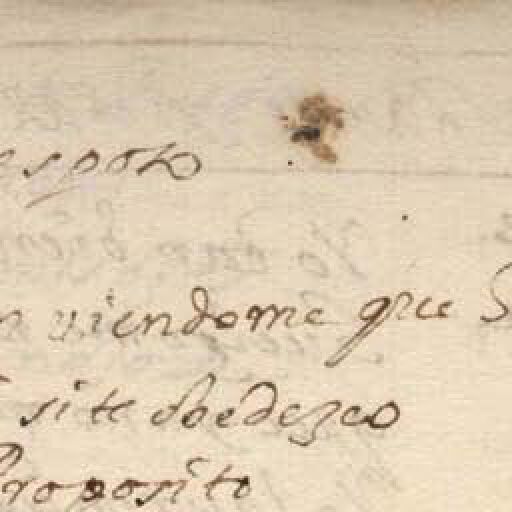 esposo
n viendome que S
si te obedezco
Proposito